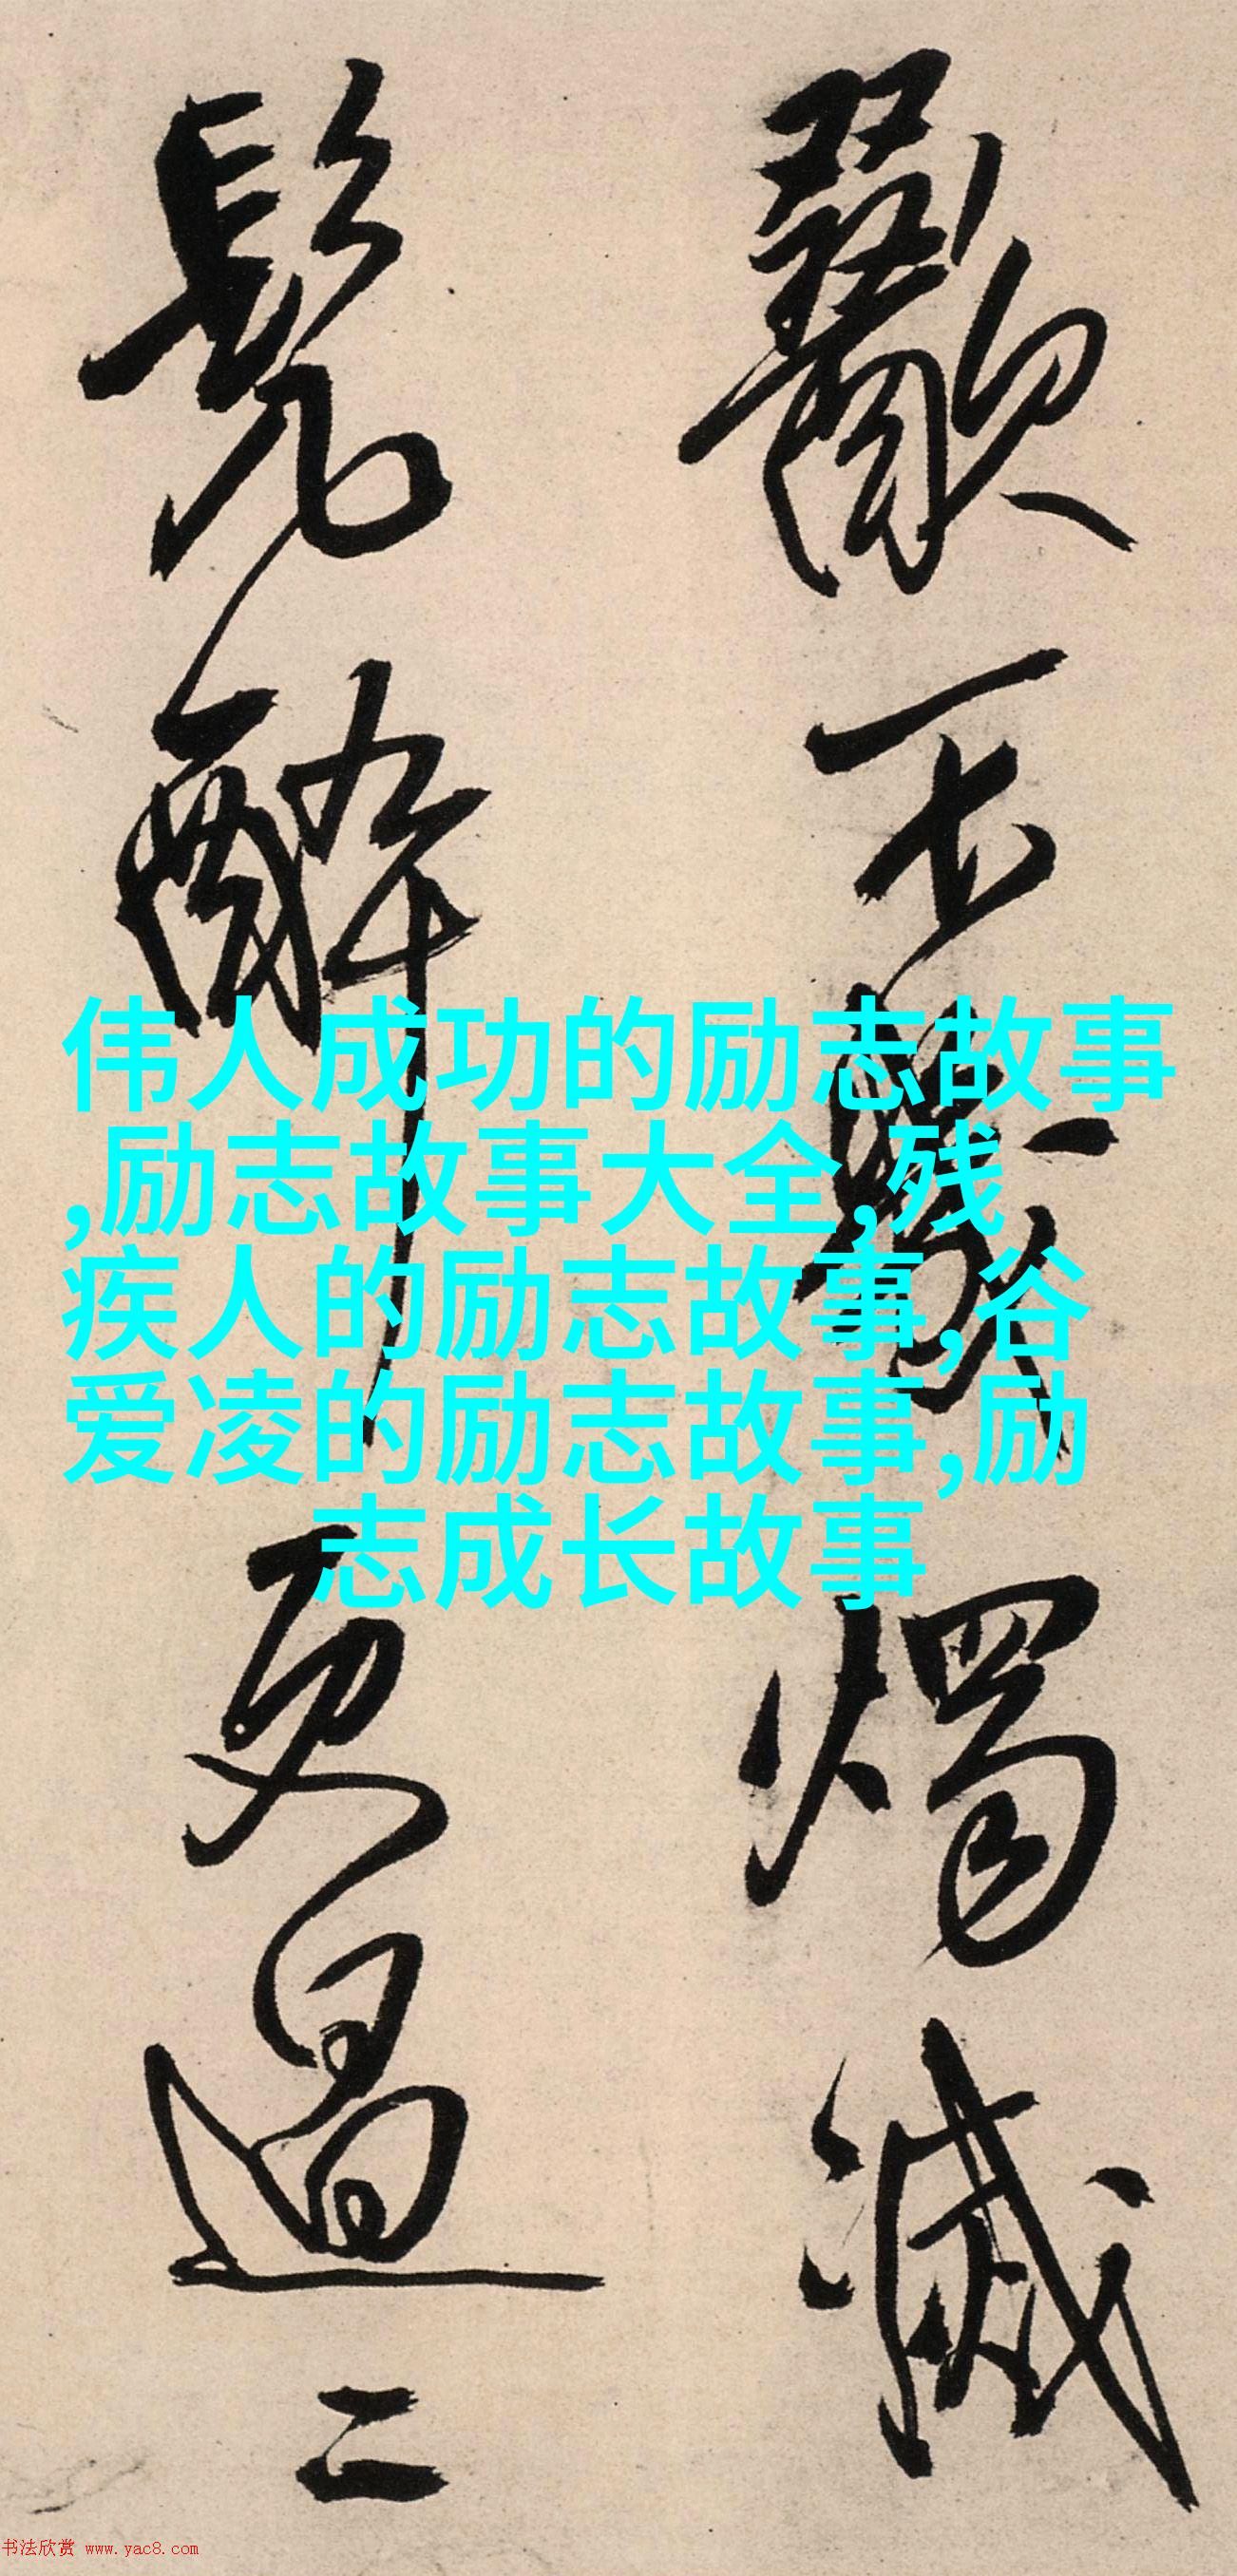 歠不驚燭滅
鬢醉更過二
伟人成功的励志故事
,励志故事大全,残
疾人的励志故事,谷
爱凌的励志故事,励
志成长故事
书法欣赏 www.yac8.com